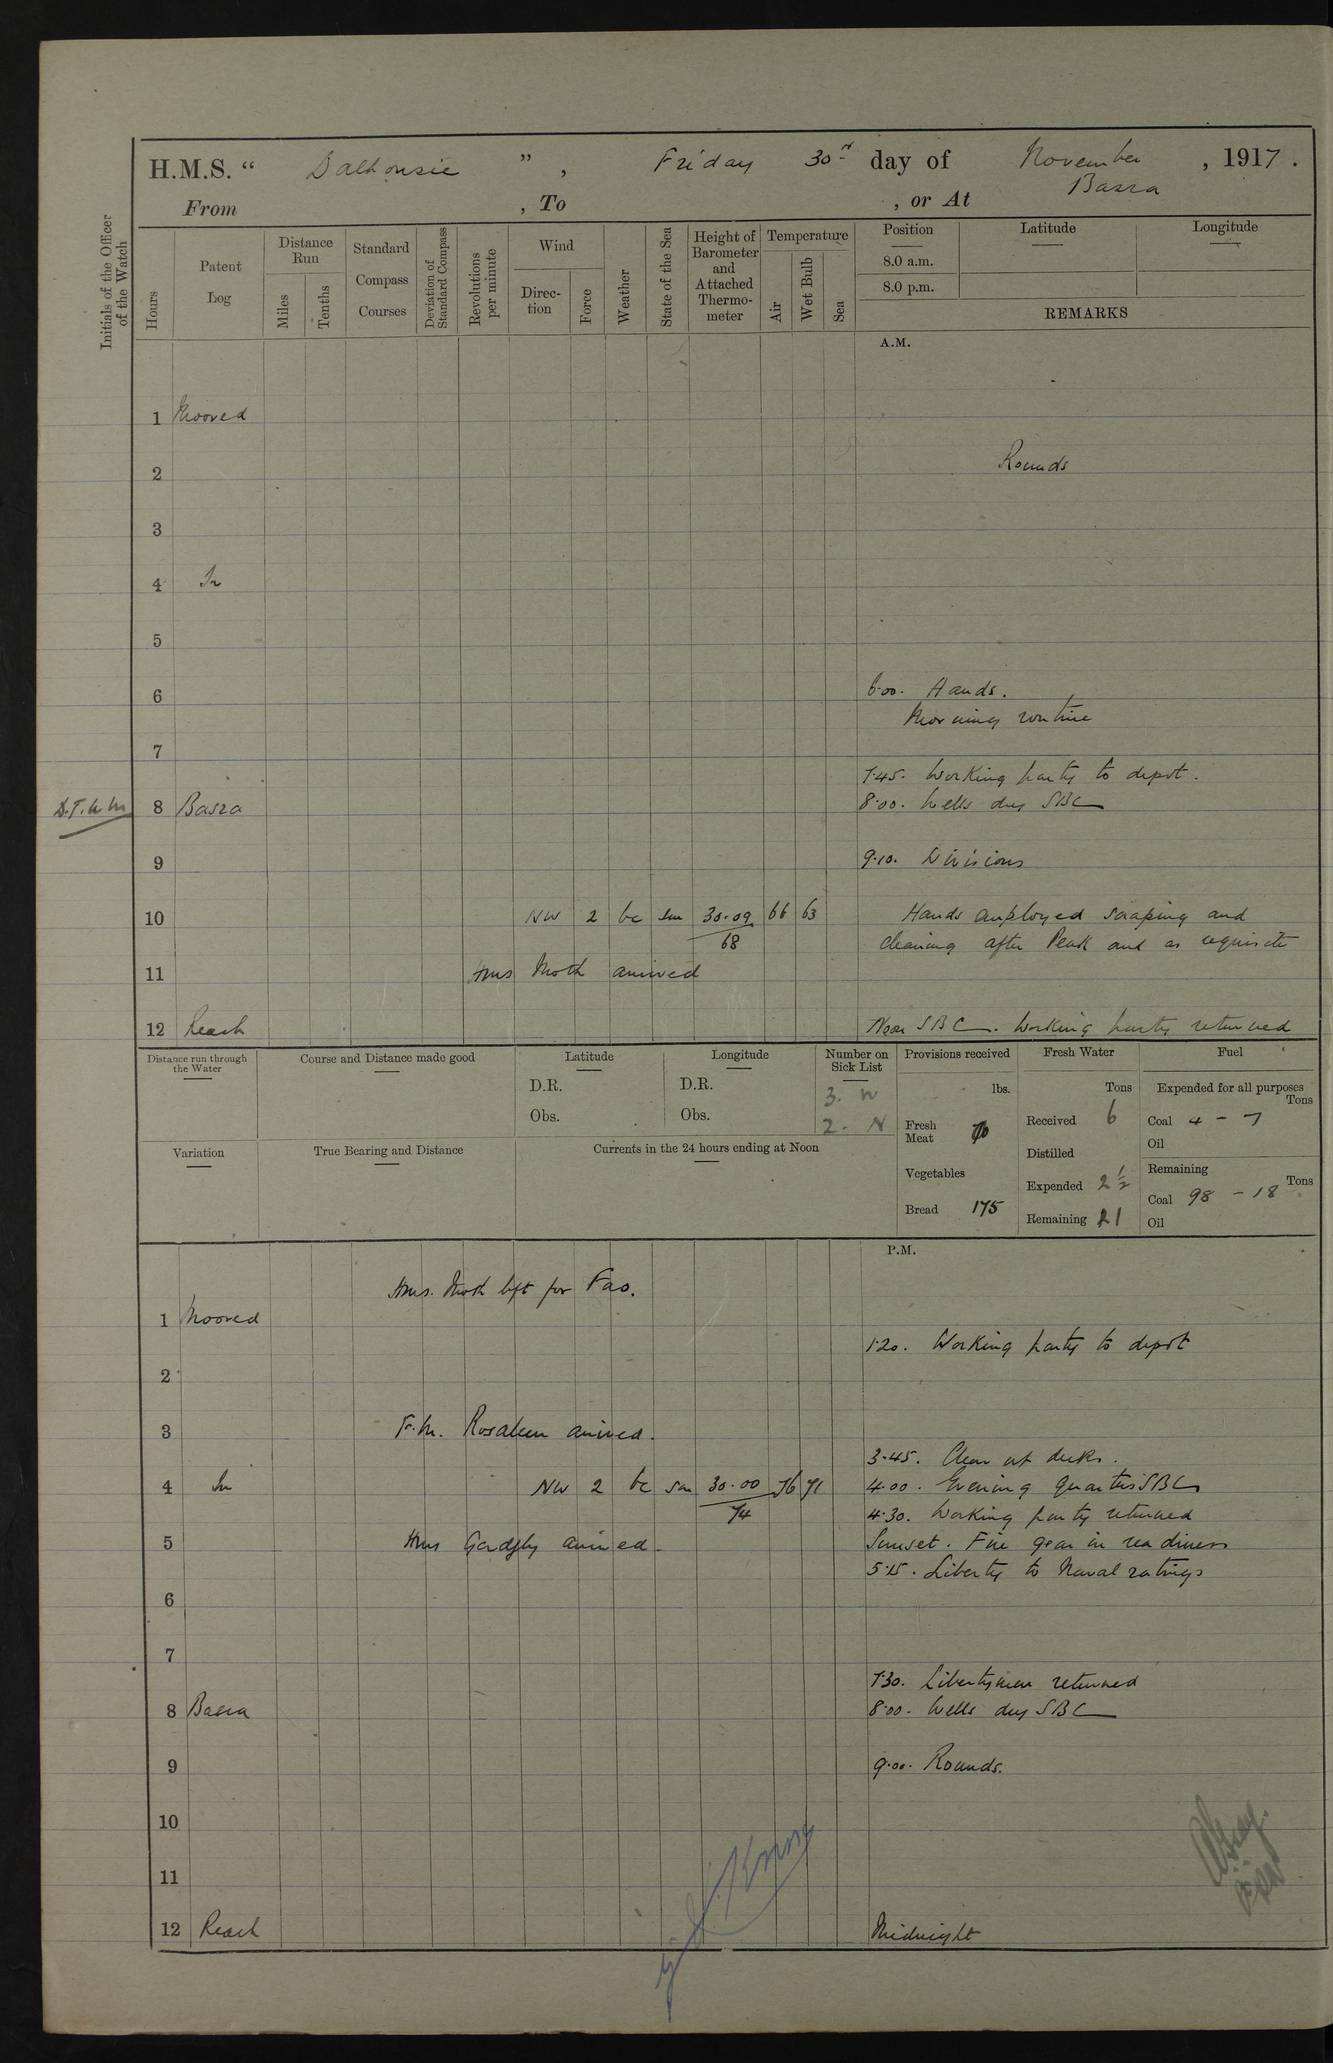 H.M.S. “ Dalhousie ” , Friday 30th day of November , 1917 .
From , To , or At Basra
Initials of the Officer of the Watch
Hours
Patent Log
Distance Run
Miles
Tenths
Standard Compass Courses
Deviation of Standard Compass
Revolutions per minute
Wind
Direc-tion
Force
Weather
State of the Sea
Height of Barometer and Attached Thermo-meter
Temperature
Air
Wet Bulb
Sea
Position
8.0 a.m.
8.0 p.m.
Latitude
Longitude
REMARKS
A.M.
1 Moored
2 Rounds
3
4 In
5
6 6.00. Hands.
Morning routine
7
7.45. Working party to depot.
8 Basra 8.00. Wells dry SBC
9 9.10. Divisions
10 NW 2 bc sm 30.09 66 63 Hands employed scraping and
68 cleaning after Peak and as requisite
11 HMS Moth arrived
12 Reach Noon SBC. Working party returned
Distance run through the Water
Course and Distance made good
Latitude
D.R.
Obs.
Longitude
D.R.
Obs.
Number on Sick List
3. W
2. N
Provisions received
lbs.
Fresh Meat 70
Vegetables
Bread 175
Fresh Water
Tons
Received 6
Distilled
Expended 2 1/2
Remaining 21
Fuel
Expended for all purposes
Tons
Coal 4 - 7
Oil
Remaining
Tons
Coal 98 - 18
Oil
Variation
True Bearing and Distance
Currents in the 24 hours ending at Noon
P.M.
HMS. Moth left for Fao.
1 Moored
1.20. Working party to depot
2
3 F.M. arrived.
3.45. Clear up decks.
4 In NW 2 bc sm 30.00 76 71 4.00. Evening quarters SBC
74 4.30. Working party returned
5 HMS Gadfly arrived. Sunset. Fire gear in readiness
5.15. Liberty to Naval ratings
6
7
7.30. Libertymen returned
8 Basra 8.00. Wells dry SBC
9 9.00. Rounds.
10
11
12 Reach Midnight